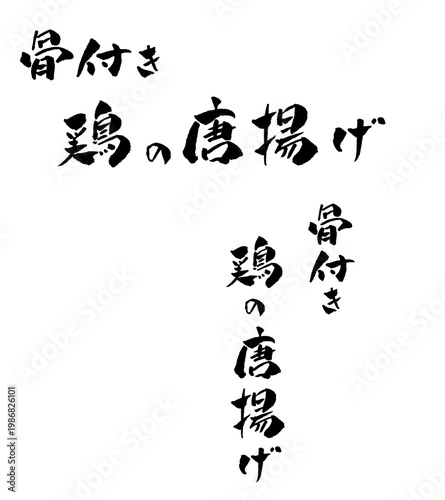 骨付き
鶏の唐揚げ
骨付き
鶏の唐揚げ
Adobe Stock | #1986826101